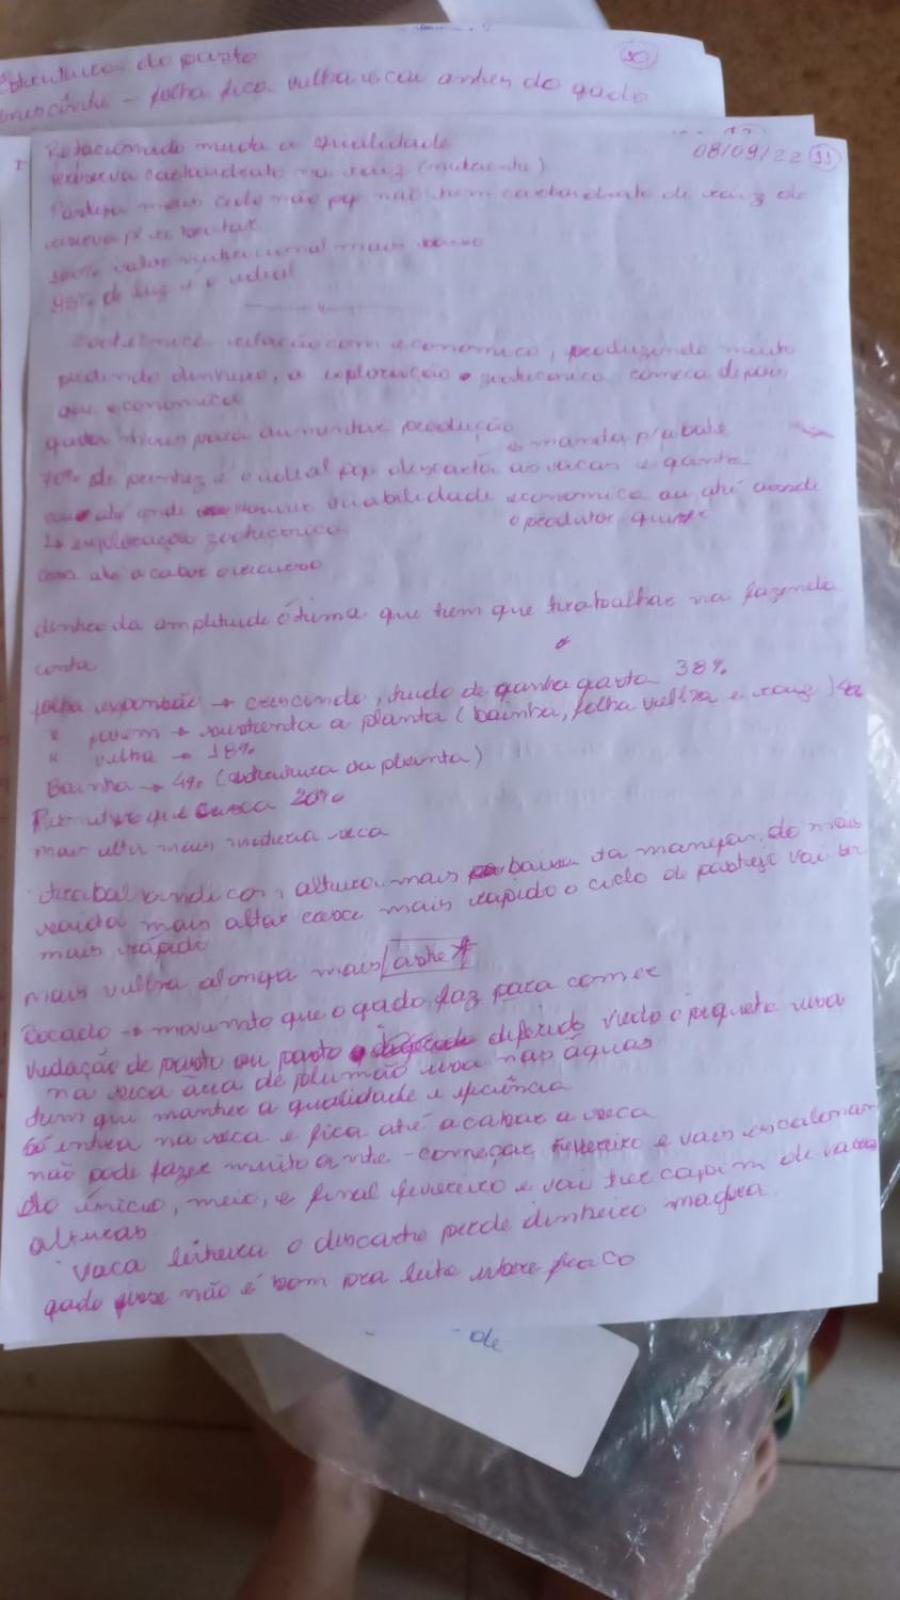 Estrutura do pasto
30
senescência - folha fica velha e cai antes do gado
08/09/22 31
Rotacionado muda a qualidade
reserva carboidrato na raiz (nutriente)
mais cedo não pq não tem carboidrato de raiz de
reserva p/ rebrotar
100% valor nutricional mais baixo
95% de luz é o ideal
Zootecnico relação com economico, produzindo muito
perdendo dinheiro, a exploração zootecnica começa depois
que economica
para aumentar produção
manda p/ abate
70% de prenhez é o ideal pq descarta as vacas e ganha
até onde houver viabilidade economica ou até aonde
o produtor quiser
↳ exploração zootecnica
até acabar o recurso
dentro da amplitude ótima que tem que trabalhar na fazenda
conta
folha expansão → crescendo, tudo de ganha gasta 38%
" jovem → sustenta a planta (bainha, folha velha e raiz)
" velha → 18%
Bainha → 4% (estrutura da planta)
Permitir que cresca 20%
mais alta mais materia seca
altura mais baixa da manejar do mais
saida mais altar cresce mais rapido o ciclo de pastejo vai ser
mais rápido
mais velha alonga mais haste
Bocado → movimento que o gado faz para comer
Vedação de pasto ou pasto diferido veda o piquete usa
na seca área de pulmão usa nas águas
tem que manter a qualidade e eficiência
Só entra na seca e fica até acabar a seca
não pode fazer muito ante - começar fevereiro e vais escalonan
do início, meio, e final fevereiro e vai ter capim de varias
alturas
Vaca leiteira o descarte perde dinheiro magra
gado não é bom pra leite
de